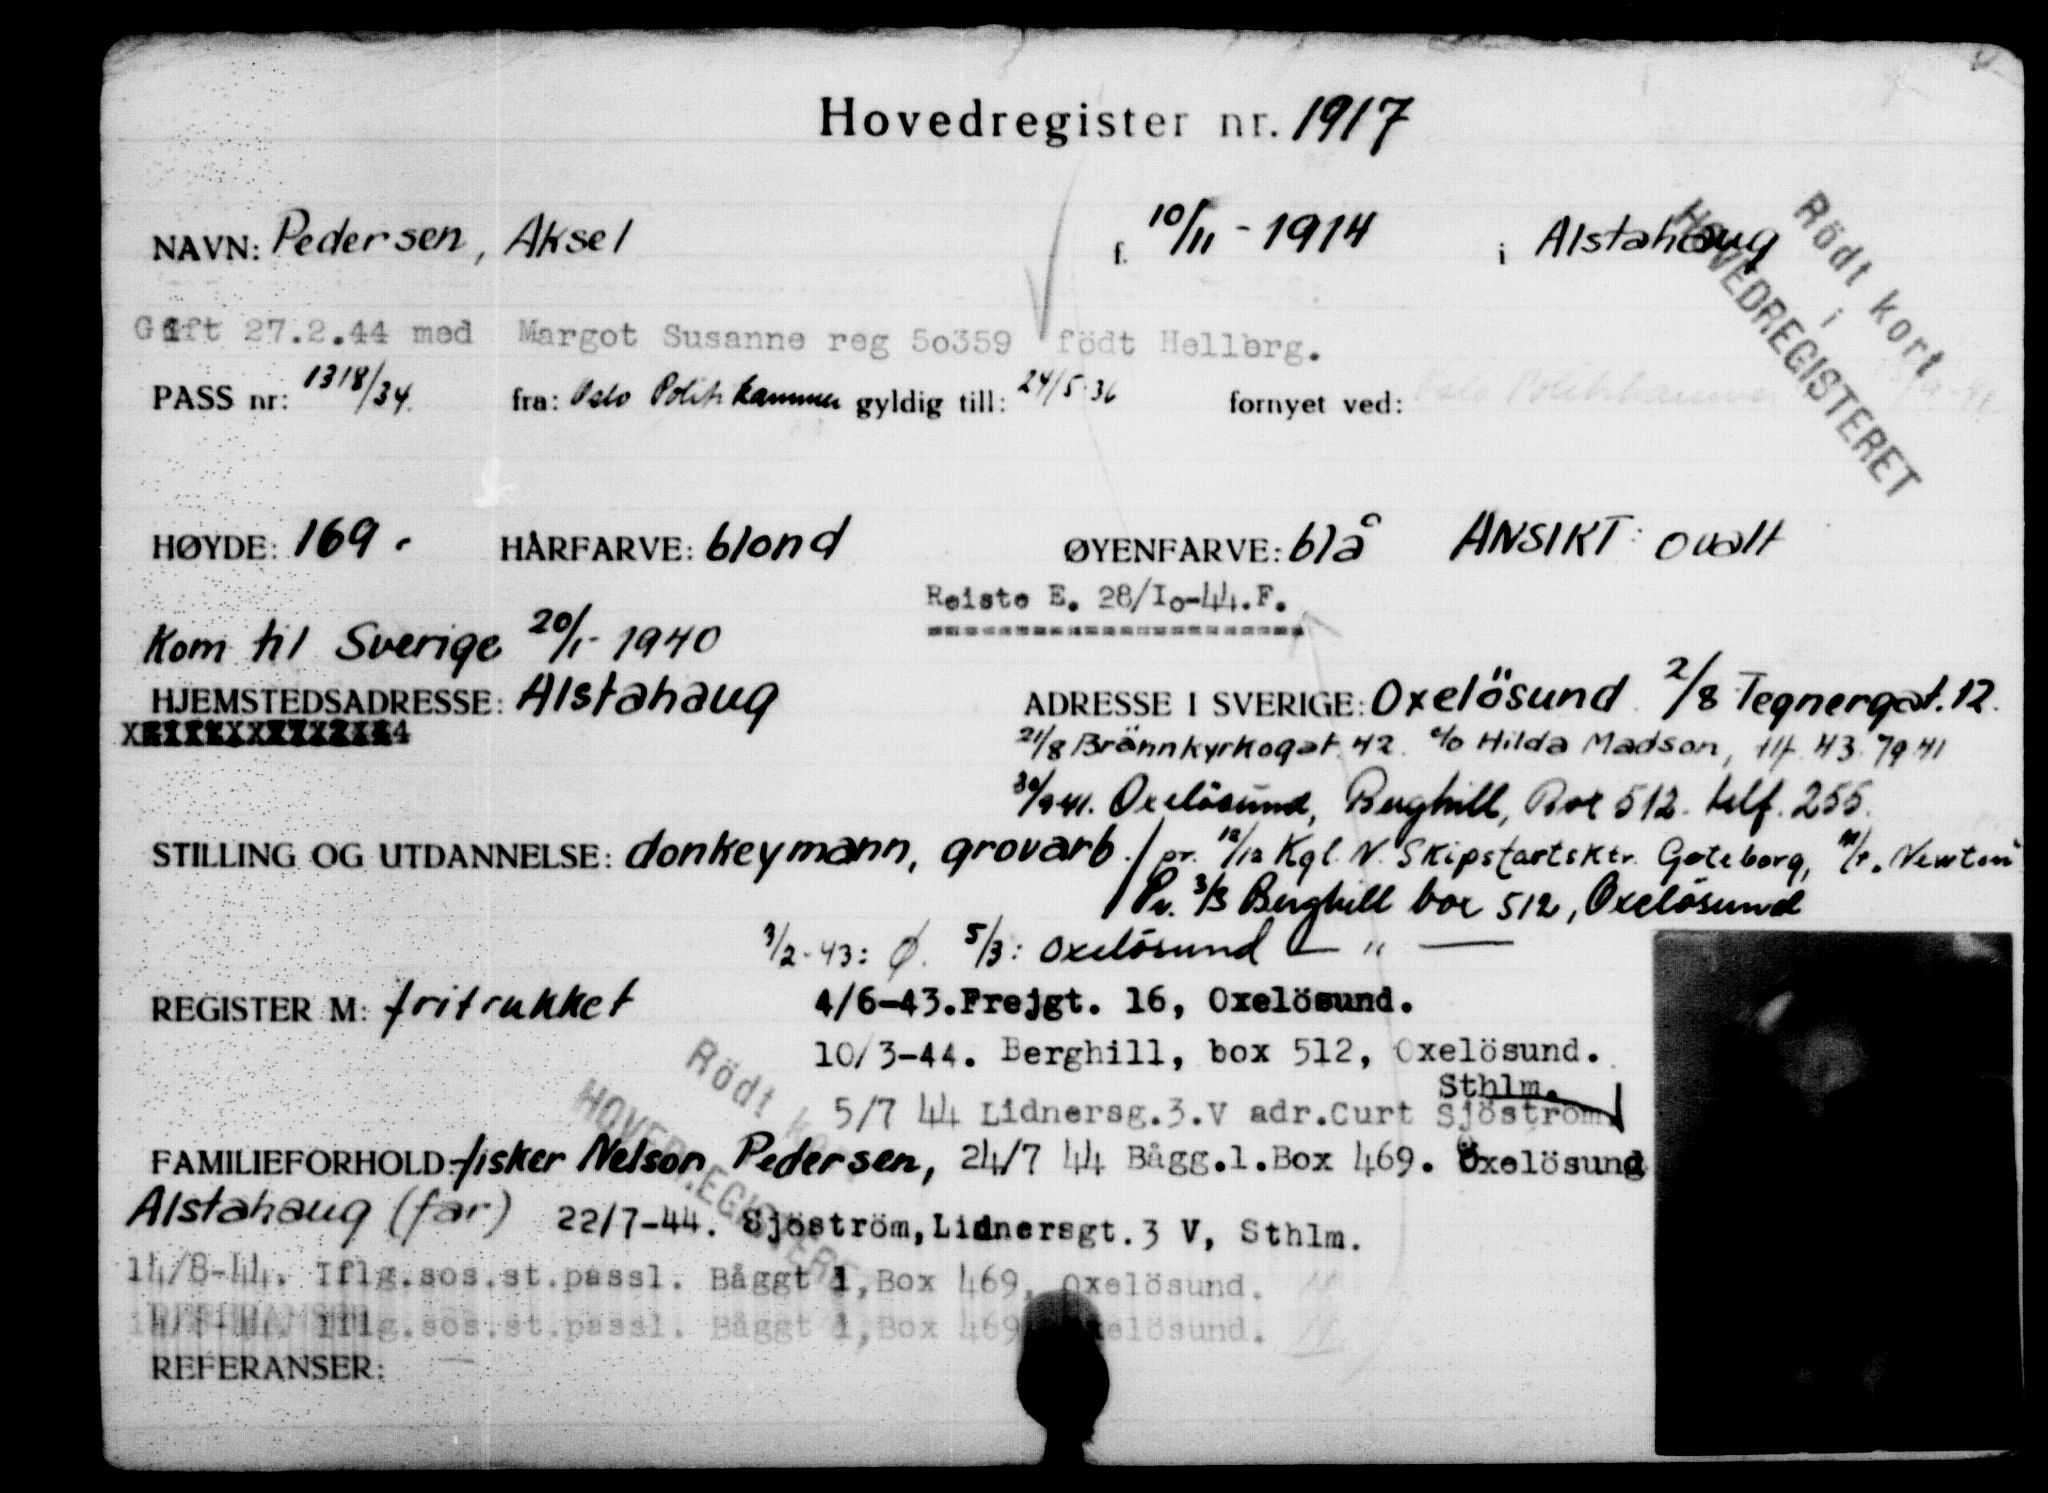 Hovedregister nr. 1917
NAVN: Pedersen, Aksel f. 10/11 - 1914 i Alstahaug
Rödt kort
i
HOVEDREGISTERET
Gift 27.2.44 med Margot Susanne reg 50359 födt Hellberg.
PASS nr: 1318/34. fra: Oslo Politikammer gyldig till: 24/5-36 fornyet ved: Oslo Politikammer
HØYDE: 169. HÅRFARVE: blond ØYENFARVE: blå ANSIKT: ovalt
Reiste E. 28/Io-44.F.
Kom til Sverige 20/1- 1940
HJEMSTEDSADRESSE: Alstahaug ADRESSE I SVERIGE: Oxelösund 2/8 Tegnergat. 12.
21/8 Brännkyrkogat. 42. c/o Hilda Madson, tlf. 43 79 41
30/9 41. Oxelösund, Berghill, Box 512. telf. 255.
STILLING OG UTDANNELSE: donkeymann, grovarb. / pr. 12/12 Kgl. N. Skipsfartsktr. Göteborg,
Pr. 3/3 Berghill box 512, Oxelösund
3/2-43: Ø. 5/3: Oxelösund — " —
REGISTER M: fritrukket 4/6-43.Frejgt. 16, Oxelösund.
10/3-44. Berghill, box 512, Oxelösund.
Sthlm.
5/7 44 Lidnersg.3.V adr.Curt Sjöström.
Rödt kort
i
HOVEDREGISTERET
FAMILIEFORHOLD: fisker Nelson Pedersen, 24/7 44 Bågg.1.Box 469. Oxelösund
Alstahaug (far) 22/7-44. Sjöström,Lidnersgt.3 V, Sthlm.
14/8-44. Iflg.sos.st.passl. Båggt 1,Box 469, Oxelösund.
14/8-44. Iflg.sos.st.passl. Båggt 1,Box 469 Oxelösund.
REFERANSER: